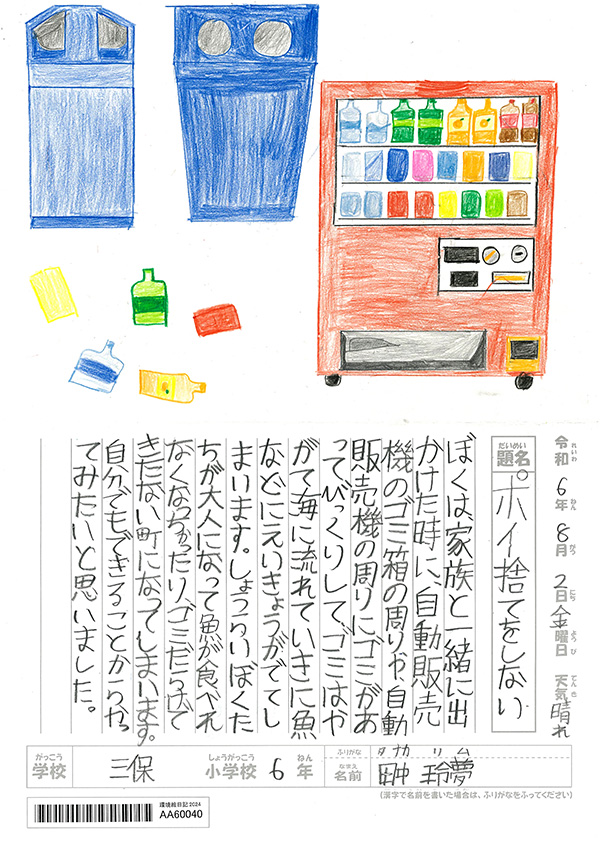 令和 6年 8月 2日 金曜日 天気 晴れ
れいわ ねん がつ にち ようび てんき
だいめい
題名 ポイ捨てをしない
ぼくは家族と一緒に出
かけた時に、自動販売
機のゴミ箱の周りや、自動
販売機の周りにゴミがあ
ってびっくりして、ゴミはや
がて海に流れていきに魚
などにえいきょうがでてし
まいます。しょうらいぼくた
ちが大人になって魚が食べれ
なくなっちゃったり、ゴミだらけで
きたない町になってしまいます。
自分でもできることからやっ
てみたいと思いました。
がっこう
学校
三保
しょうがっこう
小学校
6
ねん
年
ふりがな
タナカ リム
なまえ
名前
田中 玲夢
(漢字で名前を書いた場合は、ふりがなをふってください)
環境絵日記 2024
AA60040